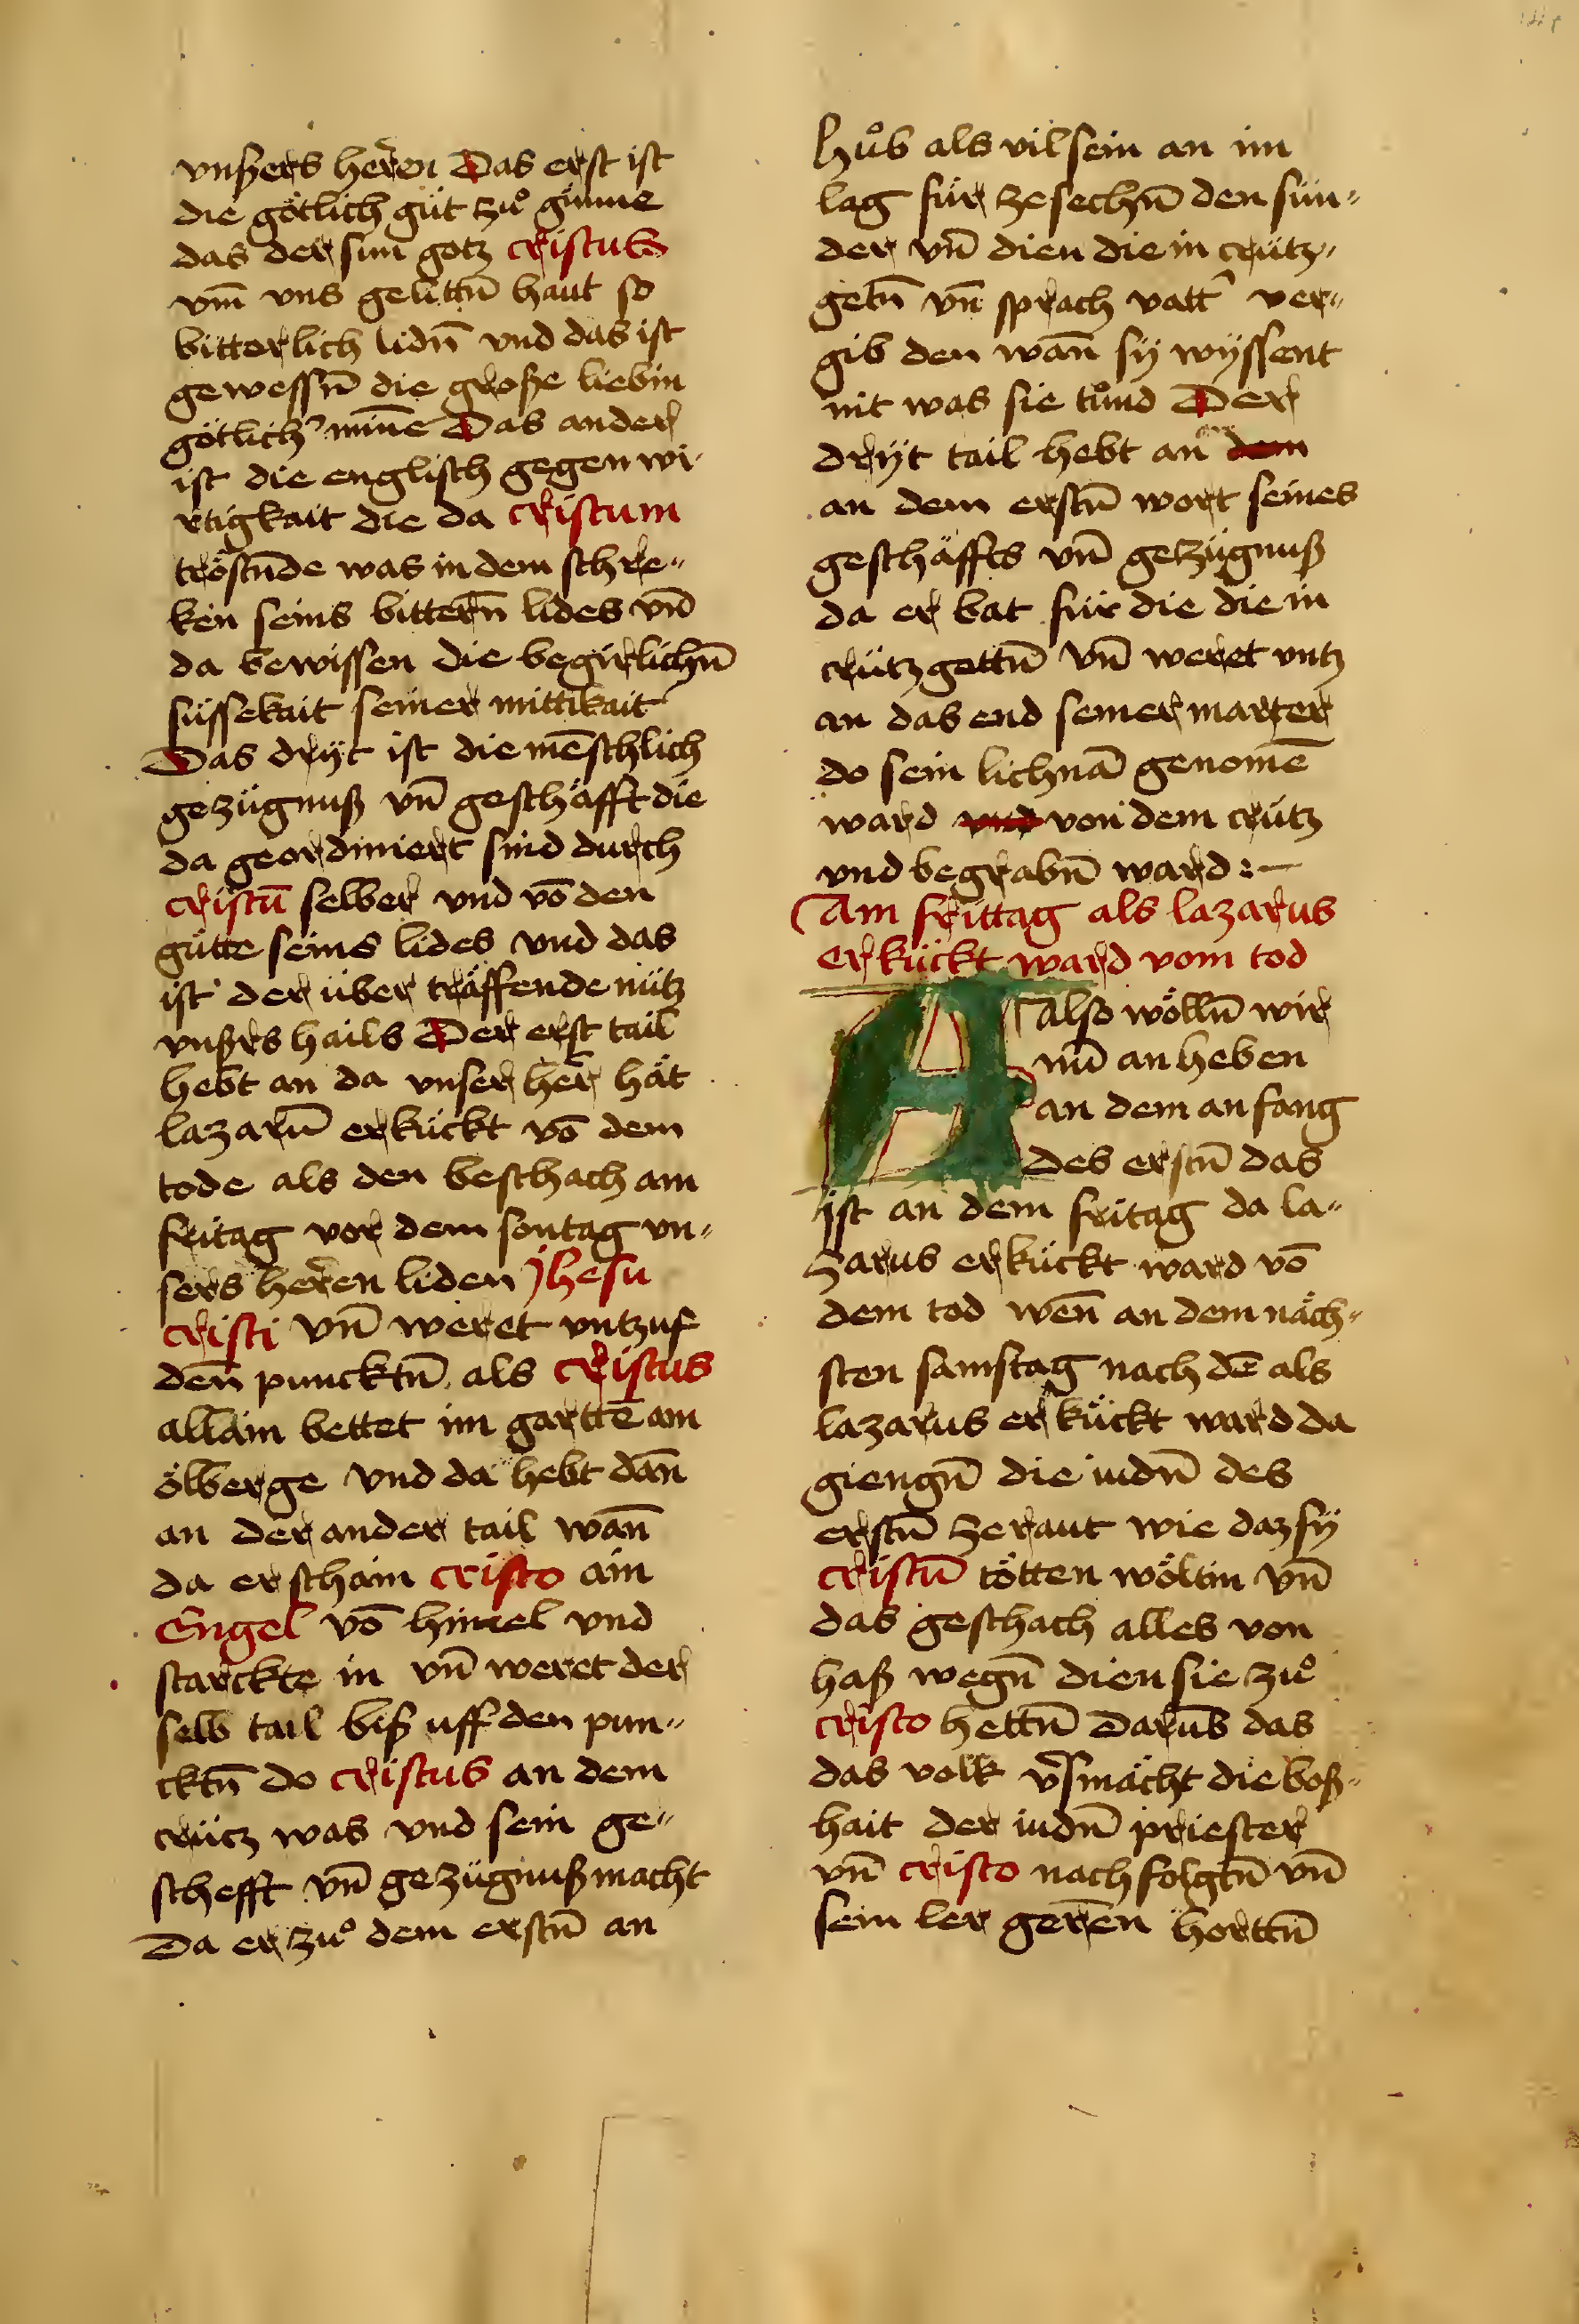 vnßers heren Das erst ist
die götlich güt zuͦ günne
das der sun gotz cristus
vm̄ vns gelittn̄ haut so
bitterlich lidn̄ vnd das ist
gewessn̄ die große liebin
götlich' minne Das ander
ist die englisch gegen wi-
rtigkait die da cristum
tröstn̄de was in dem schre„
ken seins bittern̄ lides vn̄
da bewissen die begirlichn̄
süssekait seiner mittikait
Das dryt ist die mēschlich
gezügnuß vn̄ geschäfft die
da geordiniert sind durch
cristū selber vnd vō den
gütte seins lides vnd das
ist der über träffende nütz
vnßrs hails Der erst tail
hebt an da vnser her hät
lazarū erkückt vō dem
tode als den beschach am
fritag vor dem sontag vn„
sers heren liden Jhesu
cristi vn̄ weret vntzuf
den̄ puncktn̄ als cristus
allain bettet im garttē am
ölberge vnd da hebt dan̄
an der ander tail wan̄
da erschain cristo ain
Engel vō himel vnd
starckte in vn̄ weret der
selb tail biß uff den pun„
cktn̄ do cristus an dem
crütz was vnd sein ge„
schefft vn̄ gezügnuß macht
Da er zuͦ dem erstn̄ an
huͦb als vil sein an im
lag für ze sechn̄ den sün„
der vn̄ dien die in crütz„
getn̄ vn̄ sprach vatt' ver„
gib den wan̄ sÿ wÿssent
nit was sie tuͦnd Der
drÿt tail hebt an dem
an dem erstn̄ wort seines
geschäffts vn̄ getzügnuß
da er bat für die die in
crütz gettn̄ vn̄ weret vntz
an das end seiner marter
do sein lichnā genomē
ward vnd von dem crütz
vnd begrabn̄ ward :—
Am frittag als lazarus
erkückt ward vom tod
A Also wölln̄ wir
nū an heben
an dem anfang
des erstn̄ das
ist an dem fritag da la„
zarus erkückt ward vō
dem tod wen̄ an dem näch„
sten samstag nach dē als
lazarus erkückt ward da
giengn̄ die iudn̄ des
erstn̄ ze raut wie daz sÿ
cristū tötten wöltin vn̄
das geschach alles von
haß wegn̄ dien sie zuͦ
cristo hettn̄ Darūb das
das volk v'smächt die boß„
hait der iudn̄ priester
vn̄ cristo nachfolgtn̄ vn̄
sein ler geren horttn̄